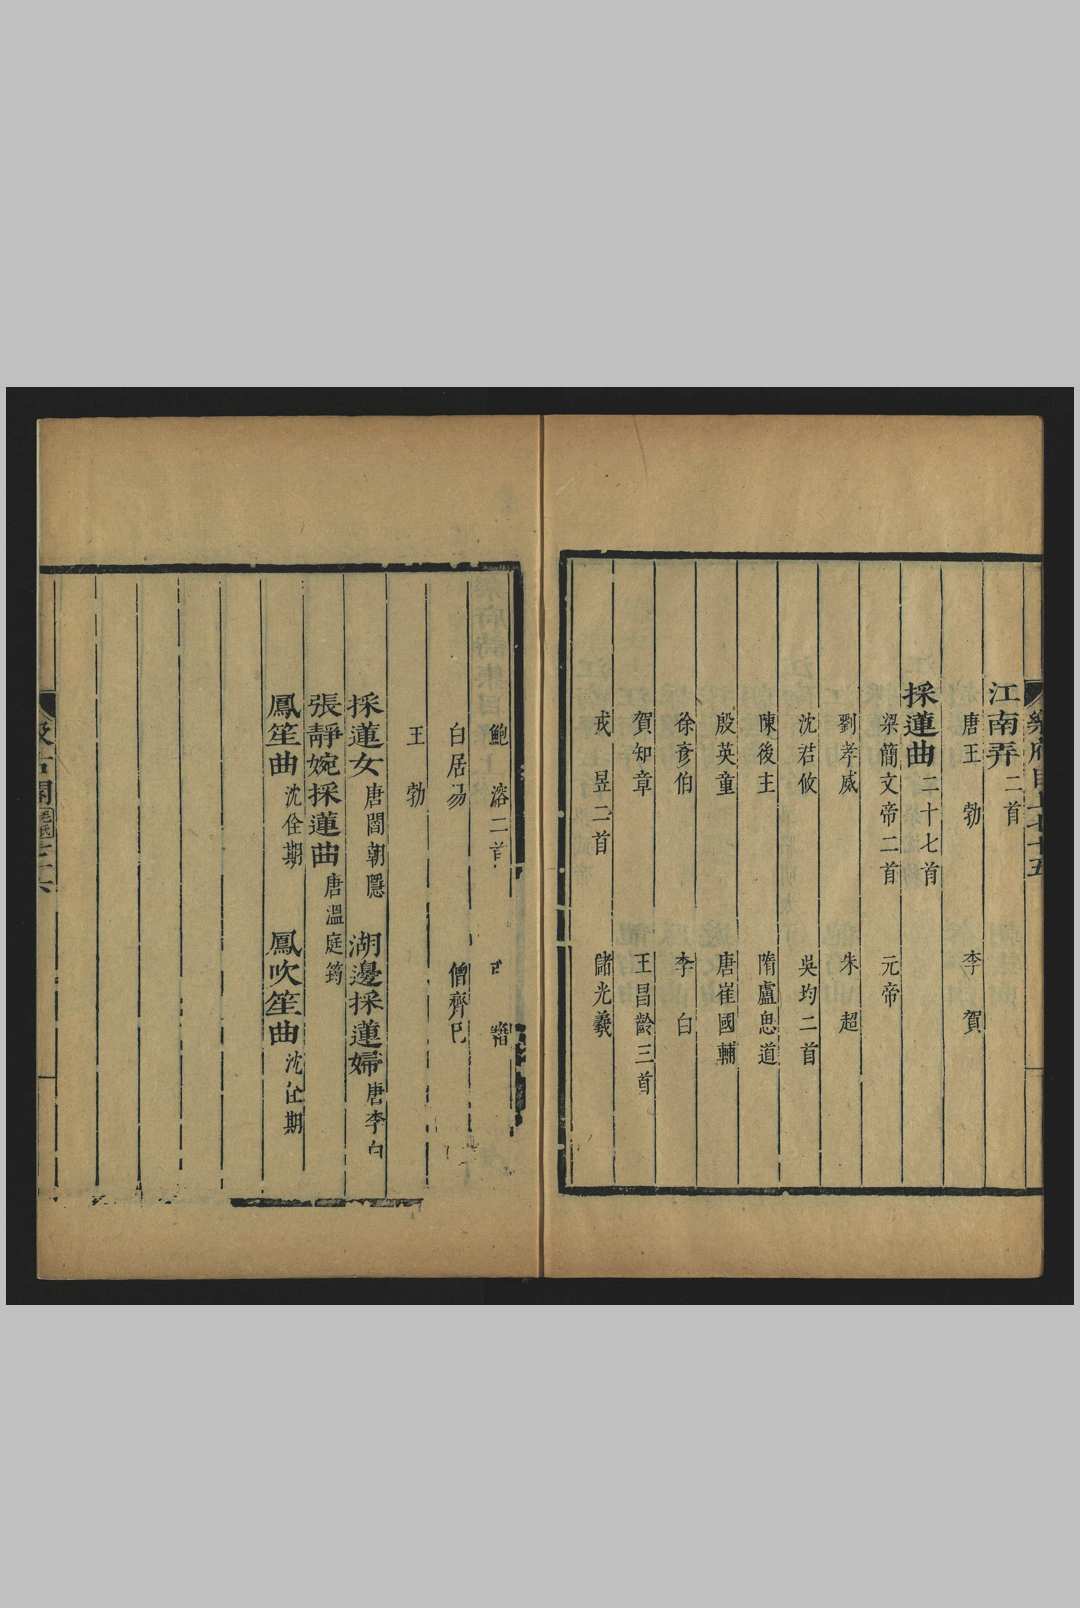 江南弄二首
唐王 勃 李 賀
採蓮曲二十七首
梁簡文帝二首 元帝
劉孝威 朱 超
沈君攸 吳均二首
陳後主 隋盧思道
殷英童 唐崔國輔
徐彥伯 李 白
賀知章 王昌齡三首
戎 昱二首 儲光羲
鮑 溶二首
白居易 僧齊巳
王 勃
採蓮女唐閻朝隱 湖邊採蓮婦唐李白
張靜婉採蓮曲唐溫庭筠
鳳笙曲沈佺期 鳳吹笙曲沈佺期